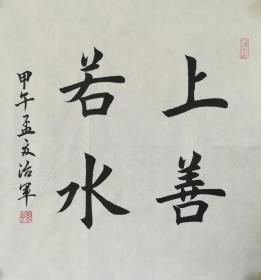 上善
若水
甲午孟夏治军